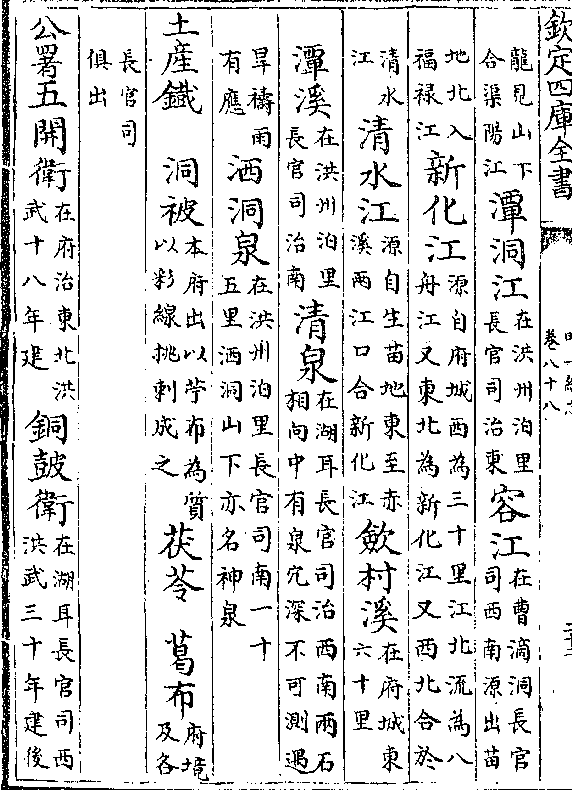 欽定四庫全書
卷八十八
龍見山下合渠陽江 潭洞江 在洪州泊里長官司治東 容江 在曹滴洞長官司西南源出苗
地北入福禄江 新化江 源自府城西為三十里江北流為八舟江又東北為新化江又西北合於
清水江 清水江 源自生苗地東至赤溪兩江口合新化江 歘村溪 在府城東六十里
潭溪 在洪州泊里長官司治南 清泉 在湖耳長官司治西南兩石相向中有泉穴深不可測遇
旱禱雨有應 洒洞泉 在洪州泊里長官司南一十五里洒洞山下亦名神泉
土産鐵 洞被 本府出以苧布為質以彩線挑刺成之 茯苓 葛布 府境及各
長官司俱出
公署五開衛 在府治東北洪武十八年建 銅鼓衛 在湖耳長官司西洪武三十年建後